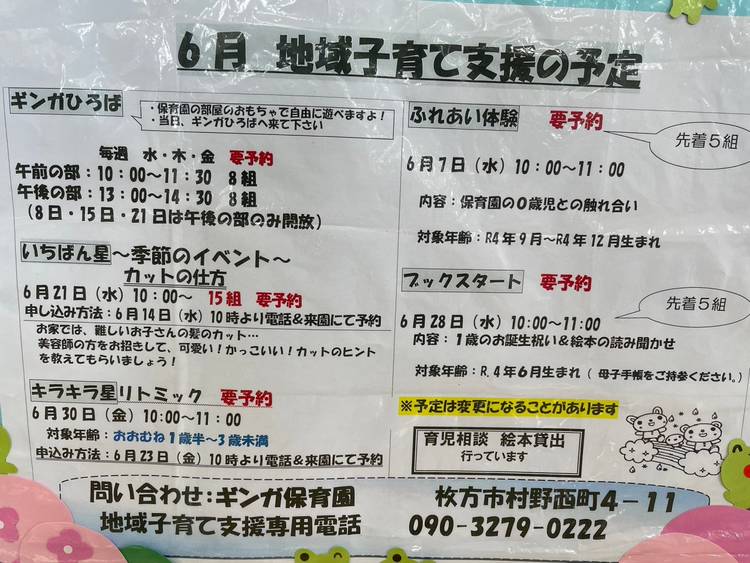 6月 地域子育て支援の予定
ギンガひろば
・保育園の部屋のおもちゃで自由に遊べますよ！
・当日、ギンガひろばへ来て下さい
毎週 水・木・金 要予約
午前の部：10：00～11：30 8組
午後の部：13：00～14：30 8組
（8日・15日・21日は午後の部のみ開放）
いちばん星～季節のイベント～
カットの仕方
6月21日（水）10：00～ 15組 要予約
申し込み方法：6月14日（水）10時より電話＆来園にて予約
お家では、難しいお子さんの髪のカット…
美容師の方をお招きして、可愛い！かっこいい！カットのヒント
を教えてもらいましょう！
キラキラ星リトミック 要予約
6月30日（金）10:00～11：00
対象年齢：おおむね1歳半～3歳未満
申込み方法：6月23日（金）10時より電話＆来園にて予約
ふれあい体験 要予約
先着5組
6月7日（水）10：00～11：00
内容：保育園の0歳児との触れ合い
対象年齢：R4年9月～R4年12月生まれ
ブックスタート 要予約
先着5組
6月28日（水）10：00～11:00
内容：1歳のお誕生祝い＆絵本の読み聞かせ
対象年齢：R.4年6月生まれ（母子手帳をご持参ください。）
※予定は変更になることがあります
育児相談 絵本貸出
行っています
問い合わせ：ギンガ保育園 枚方市村野西町4－11
地域子育て支援専用電話 090-3279-0222